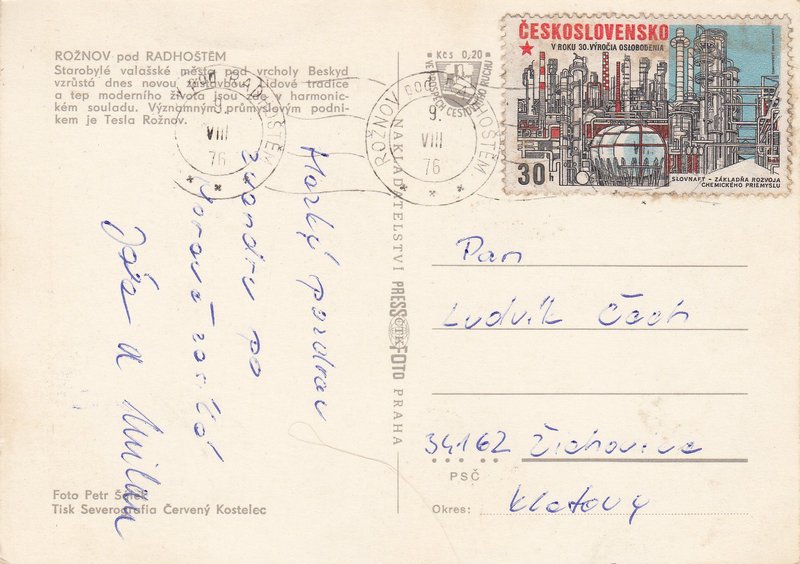 ROŽNOV pod RADHOŠTĚM
Starobylé valašské město pod vrcholy Beskyd
vzrůstá dnes novou zástavbou. Lidové tradice
a tep moderního života jsou zde v harmonic-
kém souladu. Významným průmyslovým podni-
kem je Tesla Rožnov.
Kčs 0,20
ČESKOSLOVENSKO
V ROKU 30. VÝROČIA OSLOBODENIA
30 h
SLOVNAFT - ZÁKLADŇA ROZVOJA
CHEMICKÉHO PRIEMYSLU
ROŽNOV POD RADHOŠTĚM
9.
VIII
76
9.
VIII
76
pozdrav
po
Jáťa a Milan
NAKLADATELSTVÍ PRESSFOTO PRAHA
ČTK
Pan
Ludvík Čech
34162 Žichovice
PSČ
Okres: Klatovy
Foto Petr
Tisk Severografia Červený Kostelec